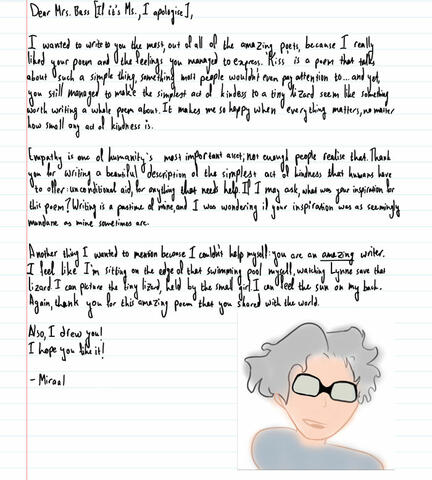 Dear Mrs. Bass [If it's Ms., I apologise],
I wanted to write to you the most, out of all of the amazing poets, because I really
liked your poem and the feelings you managed to express. 'Kiss' is a poem that talks
about such a simple thing, something most people wouldn't even pay attention to... and yet,
you still managed to make the simplest act of kindess to a tiny lizard seem like something
worth writing a whole poem about. It makes me so happy when everything matters, no matter
how small any act of kindness is.
Empathy is one of humanity's most important asset; not enough people realise that. Thank
you for writing a beautiful description of the simplest act of kindness that humans have
to offer: unconditional aid, for anything that needs help. If I may ask, what was your inspiration for
this poem? Writing is a pastime of mine, and I was wondering if your inspiration was as seemingly
mundane as mine sometimes are.
Another thing I wanted to mention because I couldn't help myself: you are an amazing writer.
I feel like I'm sitting on the edge of that swimming pool myself, watching Lynne save that
lizard. I can picture the tiny lizard, held by the small girl. I can feel the sun on my back.
Again, thank you for this amazing poem that you shared with the world.
Also, I drew you!
I hope you like it!
- Miraal